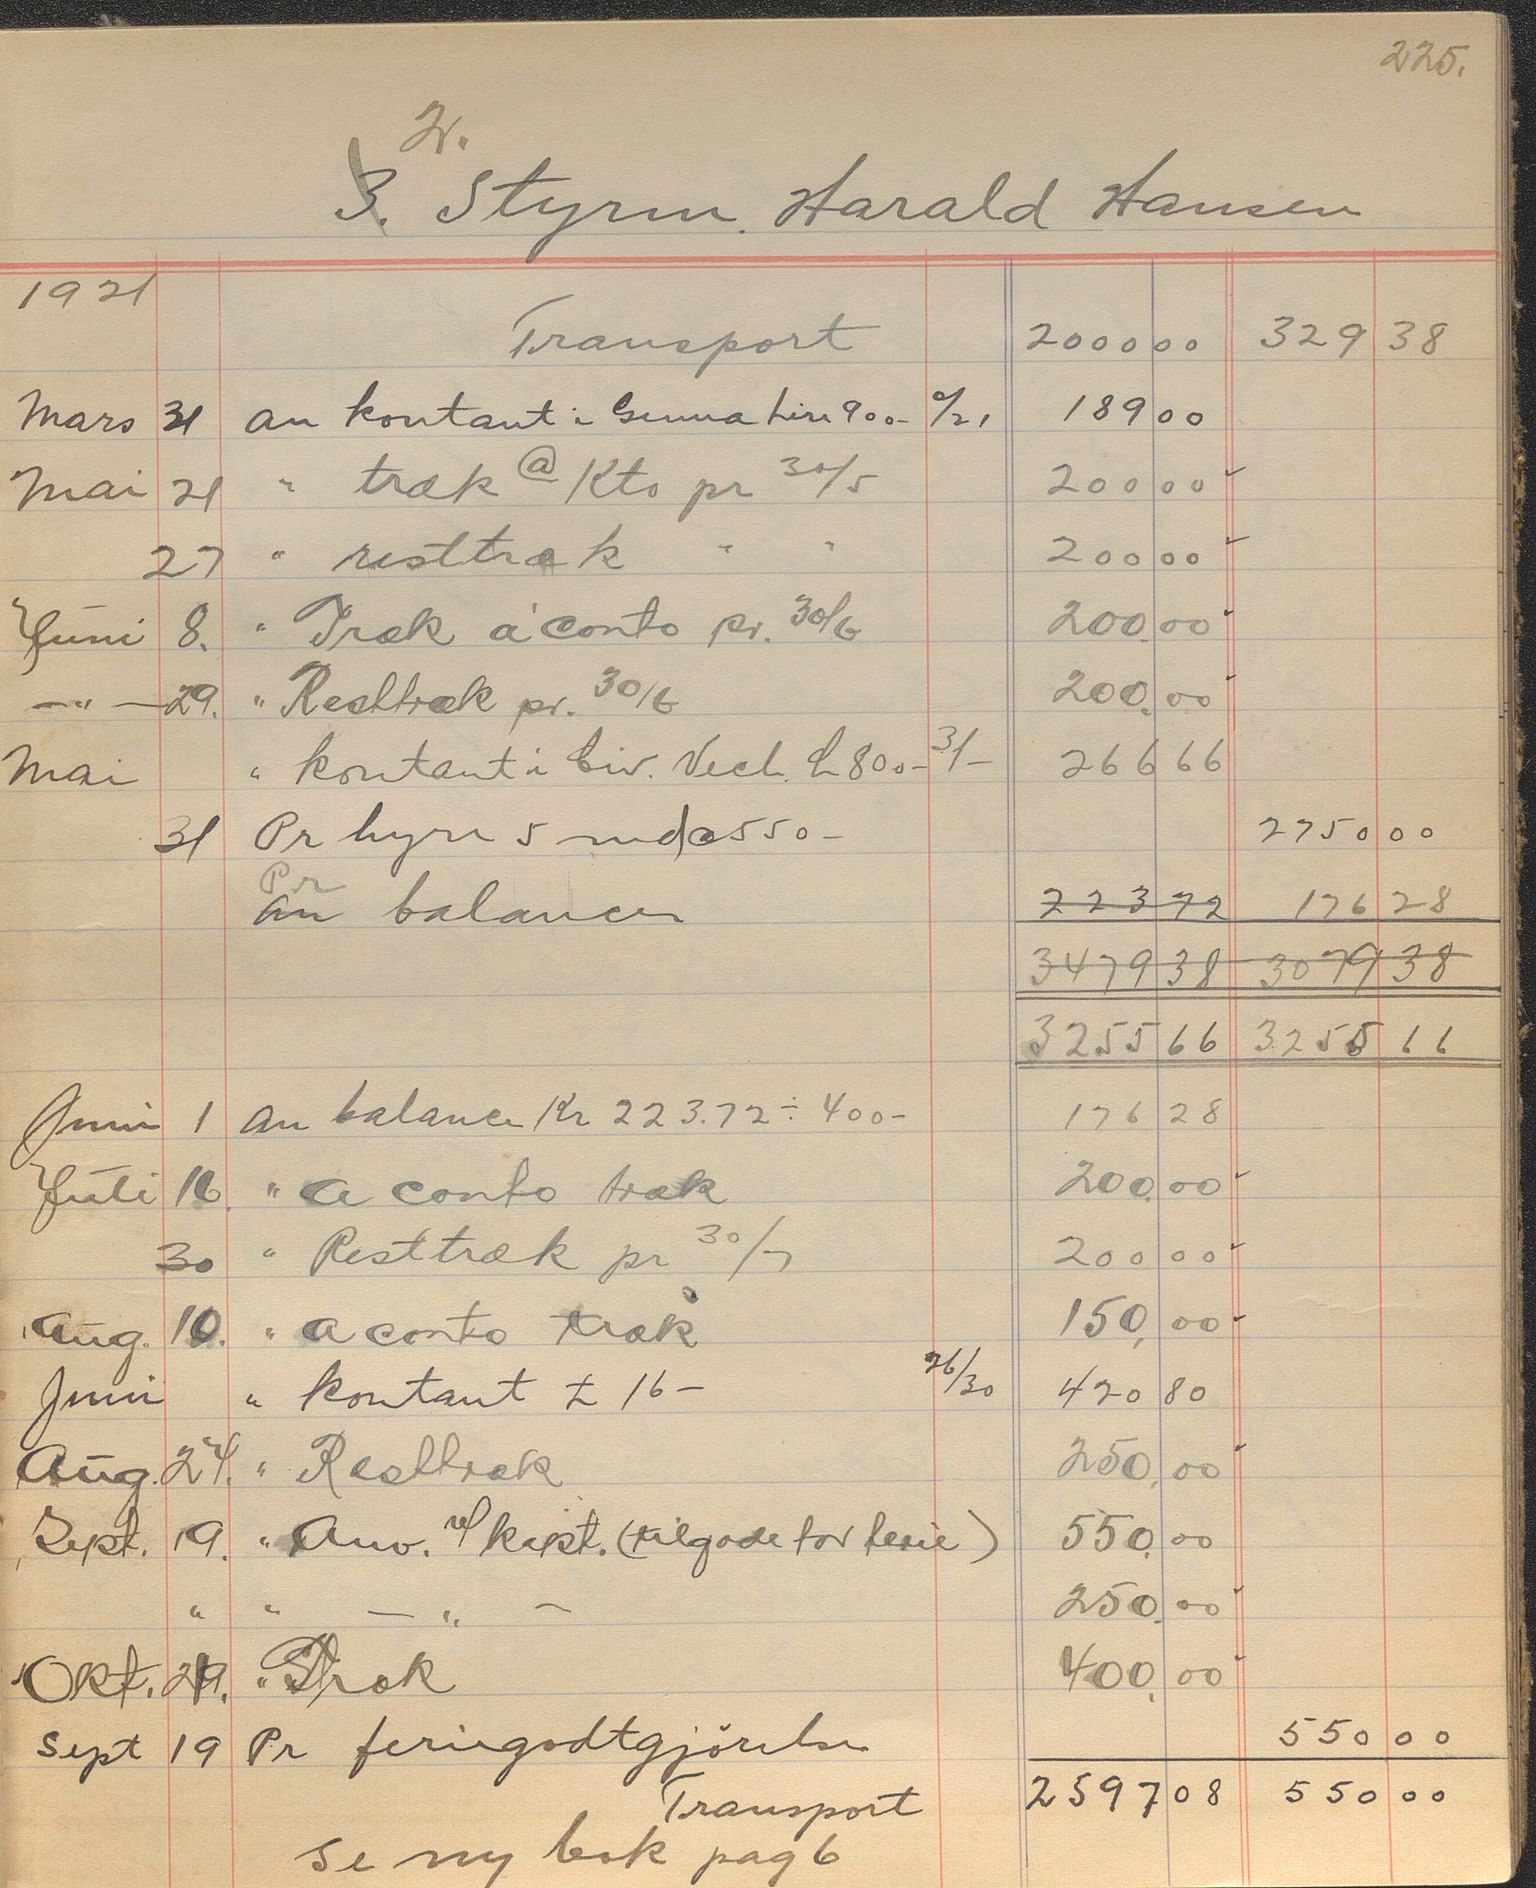 225.
2.
3. Styrm. Harald Hansen
1921
Transport 2000 00 329 38
Mars 31 An kontant i Genua Lire 900- 189 00
Mai 21 " træk @ Kto pr 30/5 200 00
27 " resttræk " " 200 00
Juni 8. " Træk a conto pr. 30/6 200.00
—"— 29. " Resttræk pr. 30/6 200.00
Mai " kontant i Civ. Vech. L 800- 31/- 266 66
31 Pr hyre 5 md a 550- 2750 00
Pr
An balance 223 72 176 28
3479 38 3079 38
3255 66 3255 66
Juni 1 An balance Kr 223.72 ÷ 400- 176 28
Juli 16. " a conto træk 200.00
30 " Resttræk pr 30/7 200 00
Aug. 10. " a conto træk 150,00
Juni " kontant £ 16- 26/30 420 80
Aug. 24. " Resttræk 250,00
Sept. 19. " Anv. v/ kapt. (tilgode for ferie) 550.00
" " — " — 250.00
Okt. 29. " Træk 400,00
Sept 19 Pr feriegodtgjörelse 550 00
Transport 2597 08 550 00
se ny bok pag 6